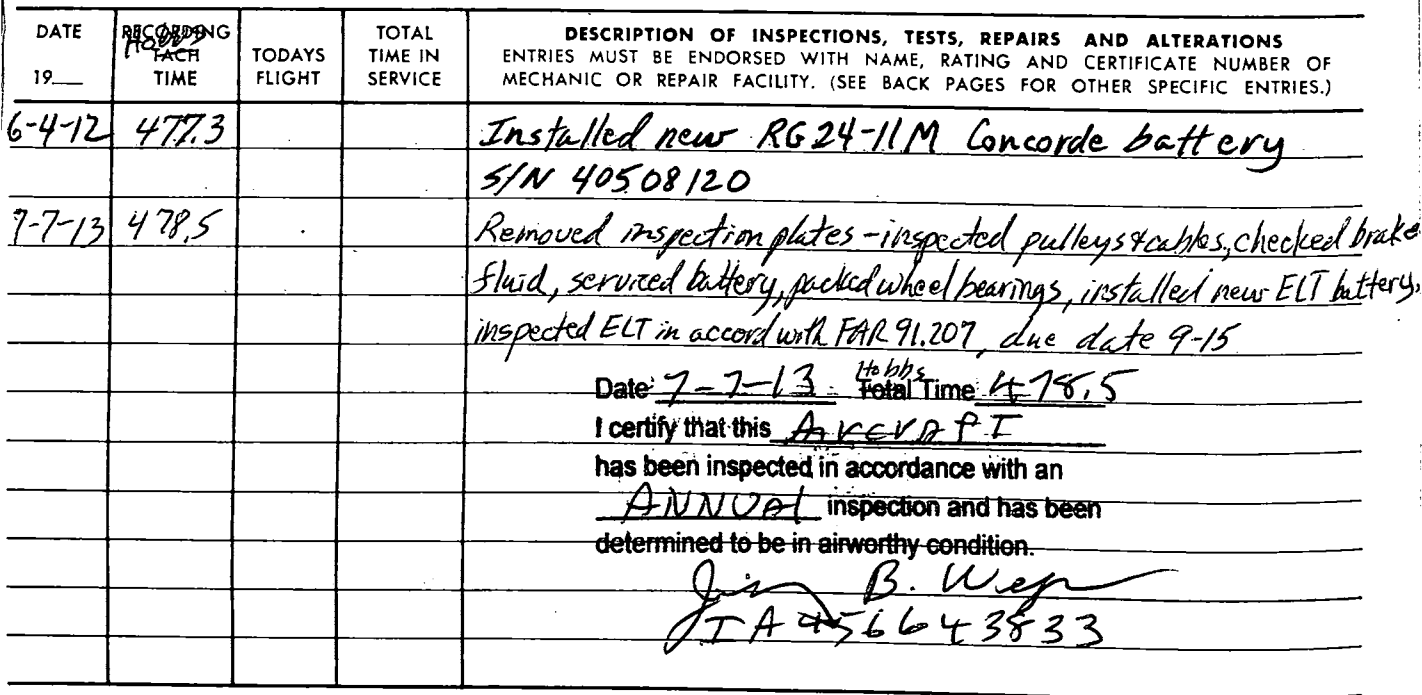 DATE RECORDING TODAYS TOTAL DESCRIPTION OF INSPECTIONS, TESTS, REPAIRS AND ALTERATIONS
Hobbs TACH FLIGHT TIME IN ENTRIES MUST BE ENDORSED WITH NAME, RATING AND CERTIFICATE NUMBER OF
19__ TIME SERVICE MECHANIC OR REPAIR FACILITY. (SEE BACK PAGES FOR OTHER SPECIFIC ENTRIES.)
6-4-12 477.3 Installed new RG24-11M Concorde battery
S/N 40508120
7-7-13 478.5 Removed inspection plates - inspected pulleys & cables, checked brake
fluid, serviced battery, packed wheel bearings, installed new ELT battery,
inspected ELT in accord with FAR 91.207, due date 9-15
Date 7-7-13 Hobbs Total Time 478.5
I certify that this
has been inspected in accordance with an
ANNUAL inspection and has been
determined to be in airworthy condition.
B.
IA 456643833